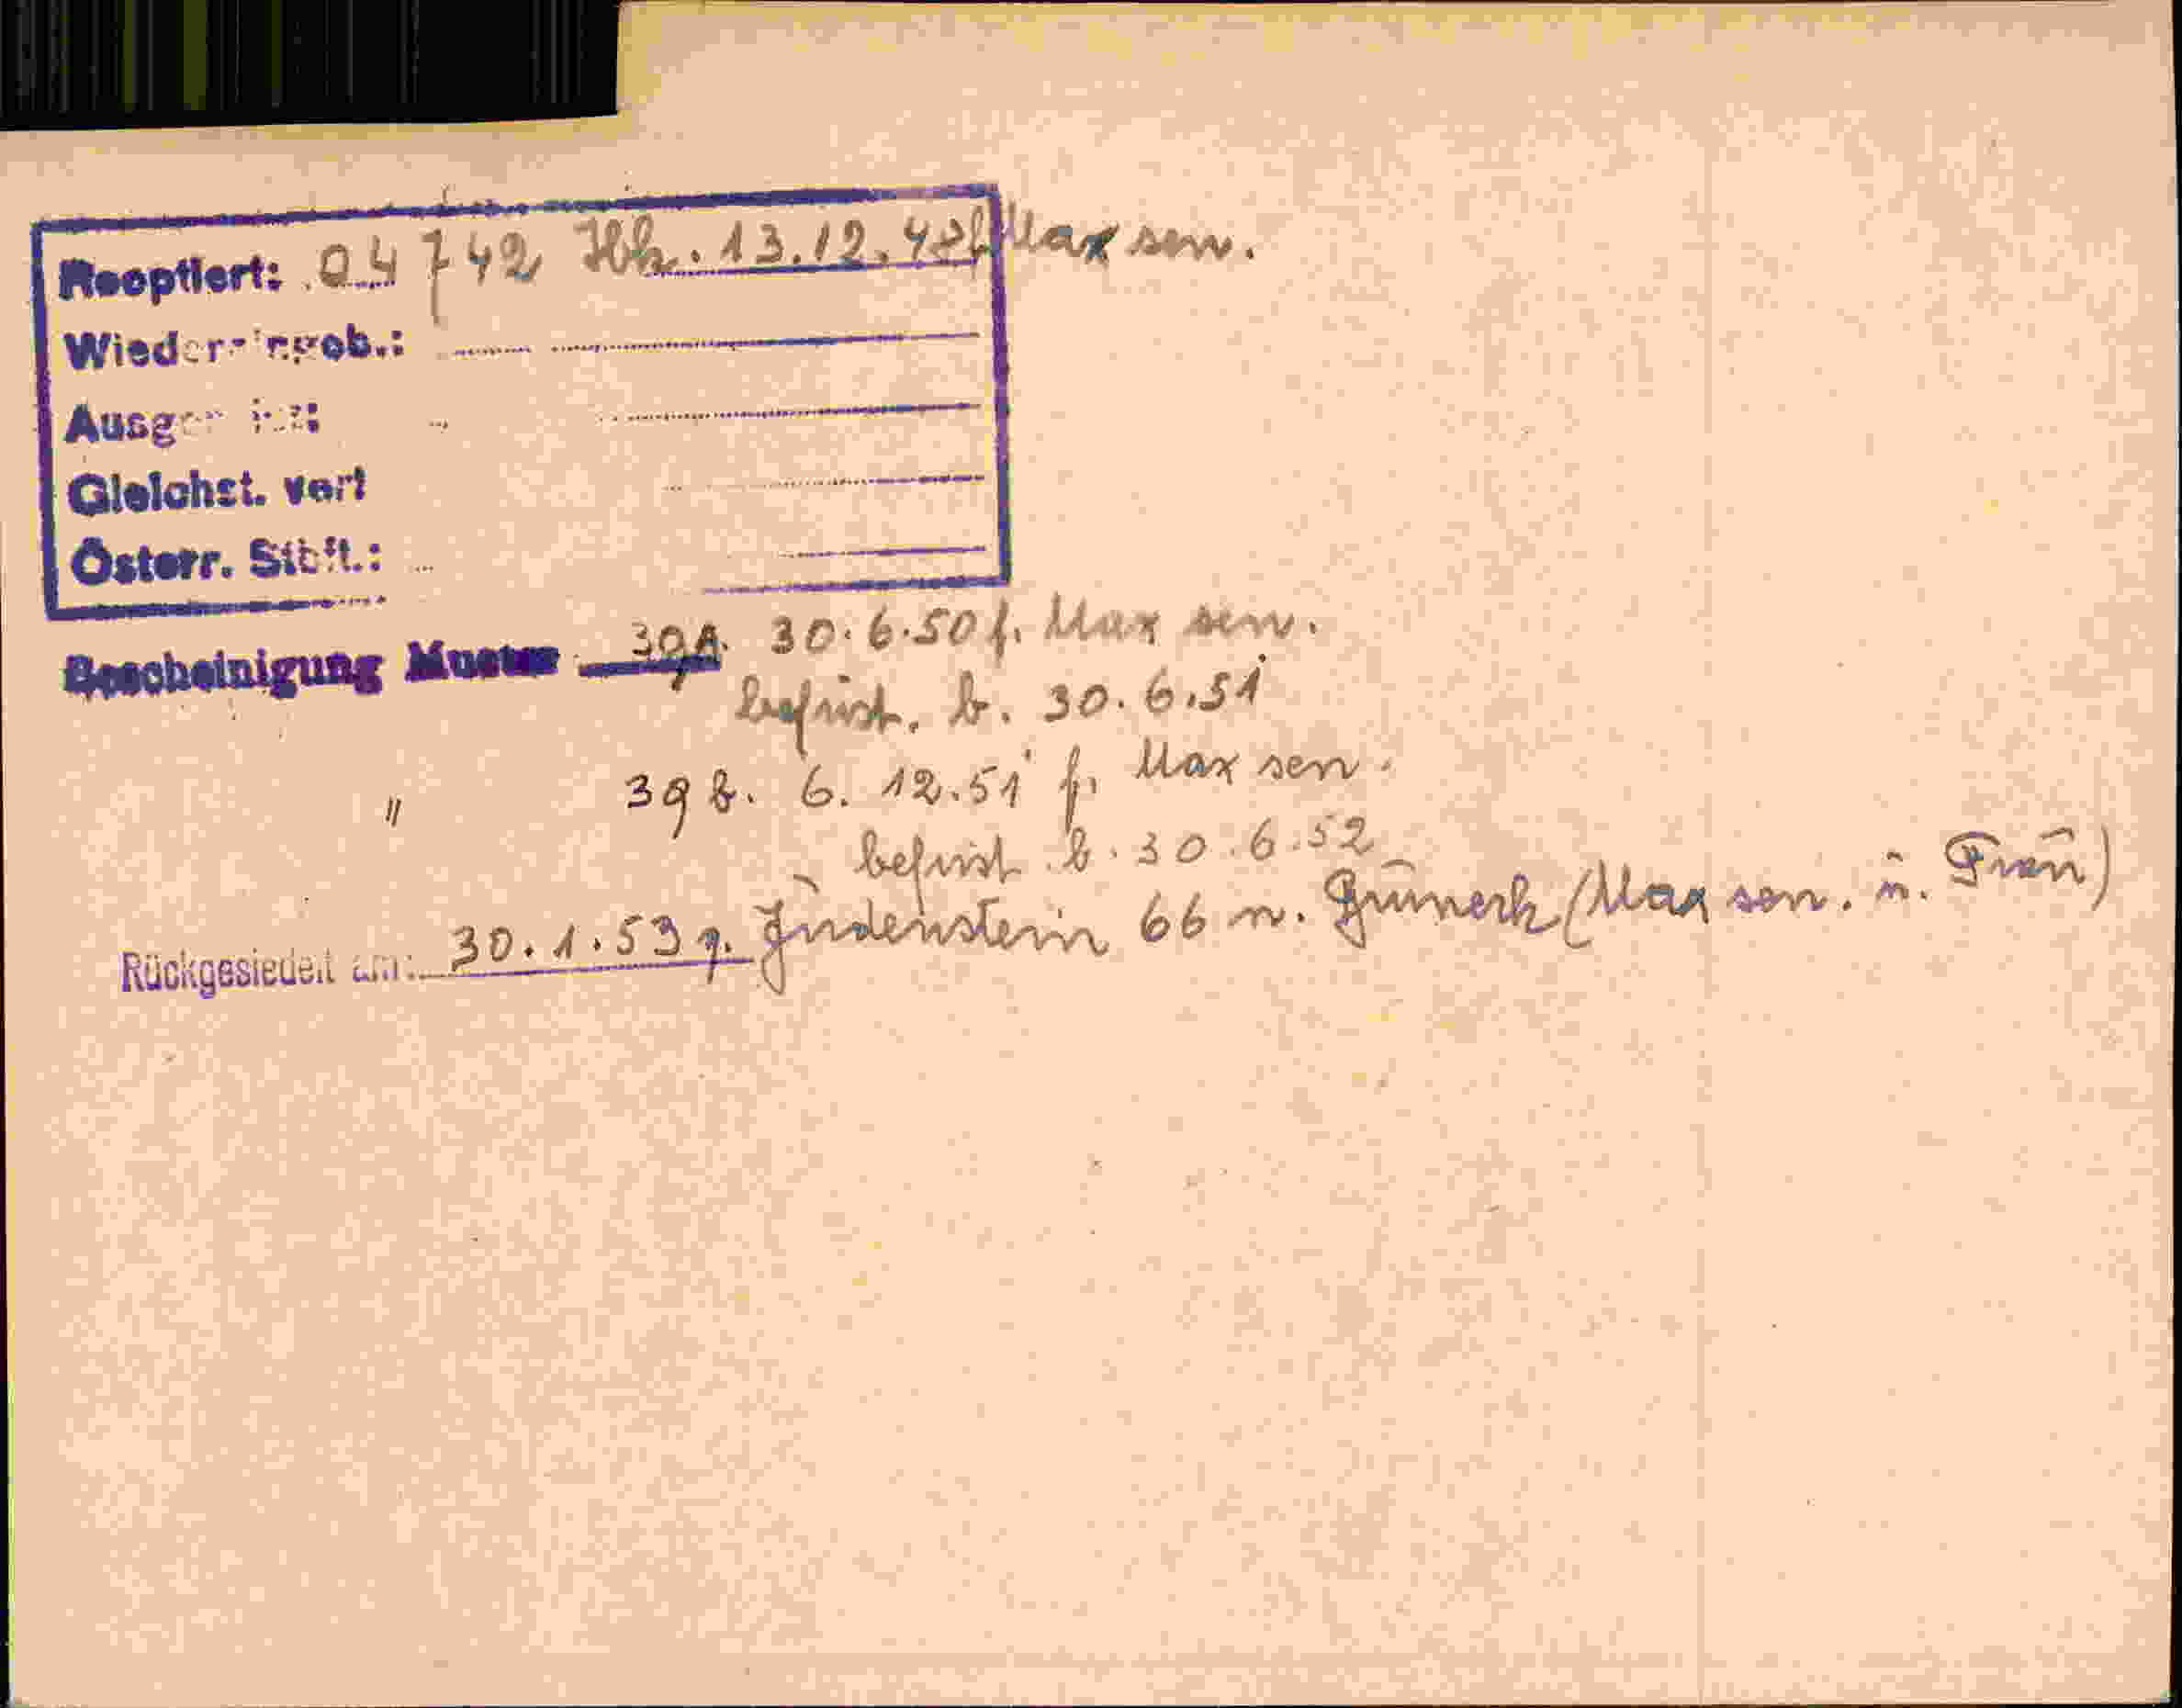 Reoptiert: 04742 Ibk. 13.12.48 f. Max sen.
Wiedereingeb.:
Ausger
Gleichst. verl
Österr. Stbft.:
Bescheinigung Muster 39A. 30.6.50 f. Max sen.
befrist. b. 30.6.51
" 39 b. 6.12.51 f. Max sen.
befrist b. 30.6.52
Rückgesiedelt am: 30.1.53 Judenstein 66 n. (Max sen. u. Frau)